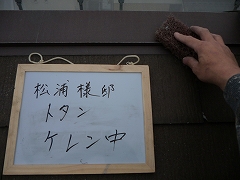 松浦様邸
トタン
ケレン中